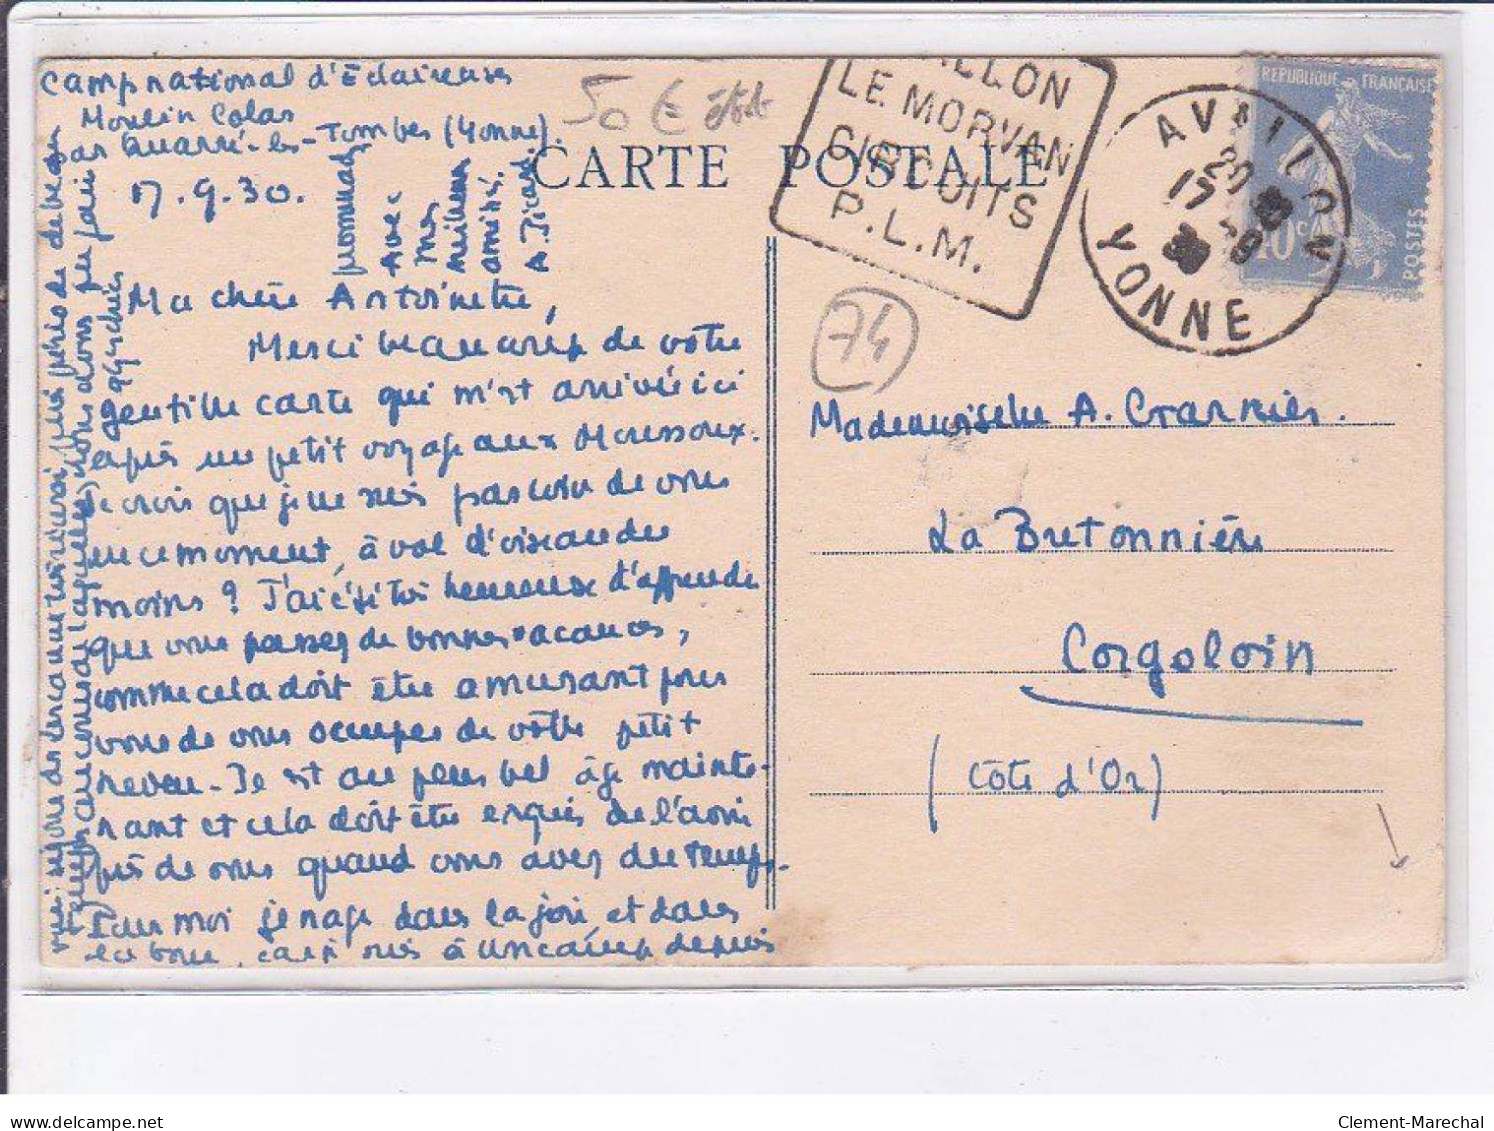 Camp national d'Eclaireuses
Moulin Colas
par Quarré-les-Tombes (Yonne).
17.9.30.
Ma chère Antoinette,
Merci beaucoup de votre
gentille carte qui m'est arrivée ici
après un petit voyage aux Mousseaux.
Je crois que je ne suis pas loin de vous
en ce moment, à vol d'oiseau du
moins ? J'ai été très heureuse d'apprendre
que vous passez de bonnes vacances,
comme cela doit être amusant pour
vous de vous occuper de votre petit
neveu. Il est au plus bel âge mainte-
nant et cela doit être exquis de l'avoir
près de vous quand vous avez du temps.
Pour moi je nage dans la joie et dans
la boue, car je suis à un camp depuis
promenades
Avec
mes
meilleures
amitiés.
A. Picard
50 €
CARTE POSTALE
ALLON
LE MORVAN
CIRCUITS
P.L.M.
AVALLON
20
17 -9
30
YONNE
REPUBLIQUE FRANÇAISE
40c
POSTES
74
Mademoiselle A. Crarnier.
La Bretonnière
Corgoloin
(Côte d'Or)
delcampe.net
Clement-Marechal